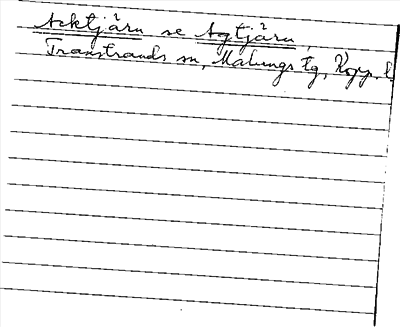 Acktjärn se Agtjärn,
Transtrands sn, Malungs tg, Kopp. l